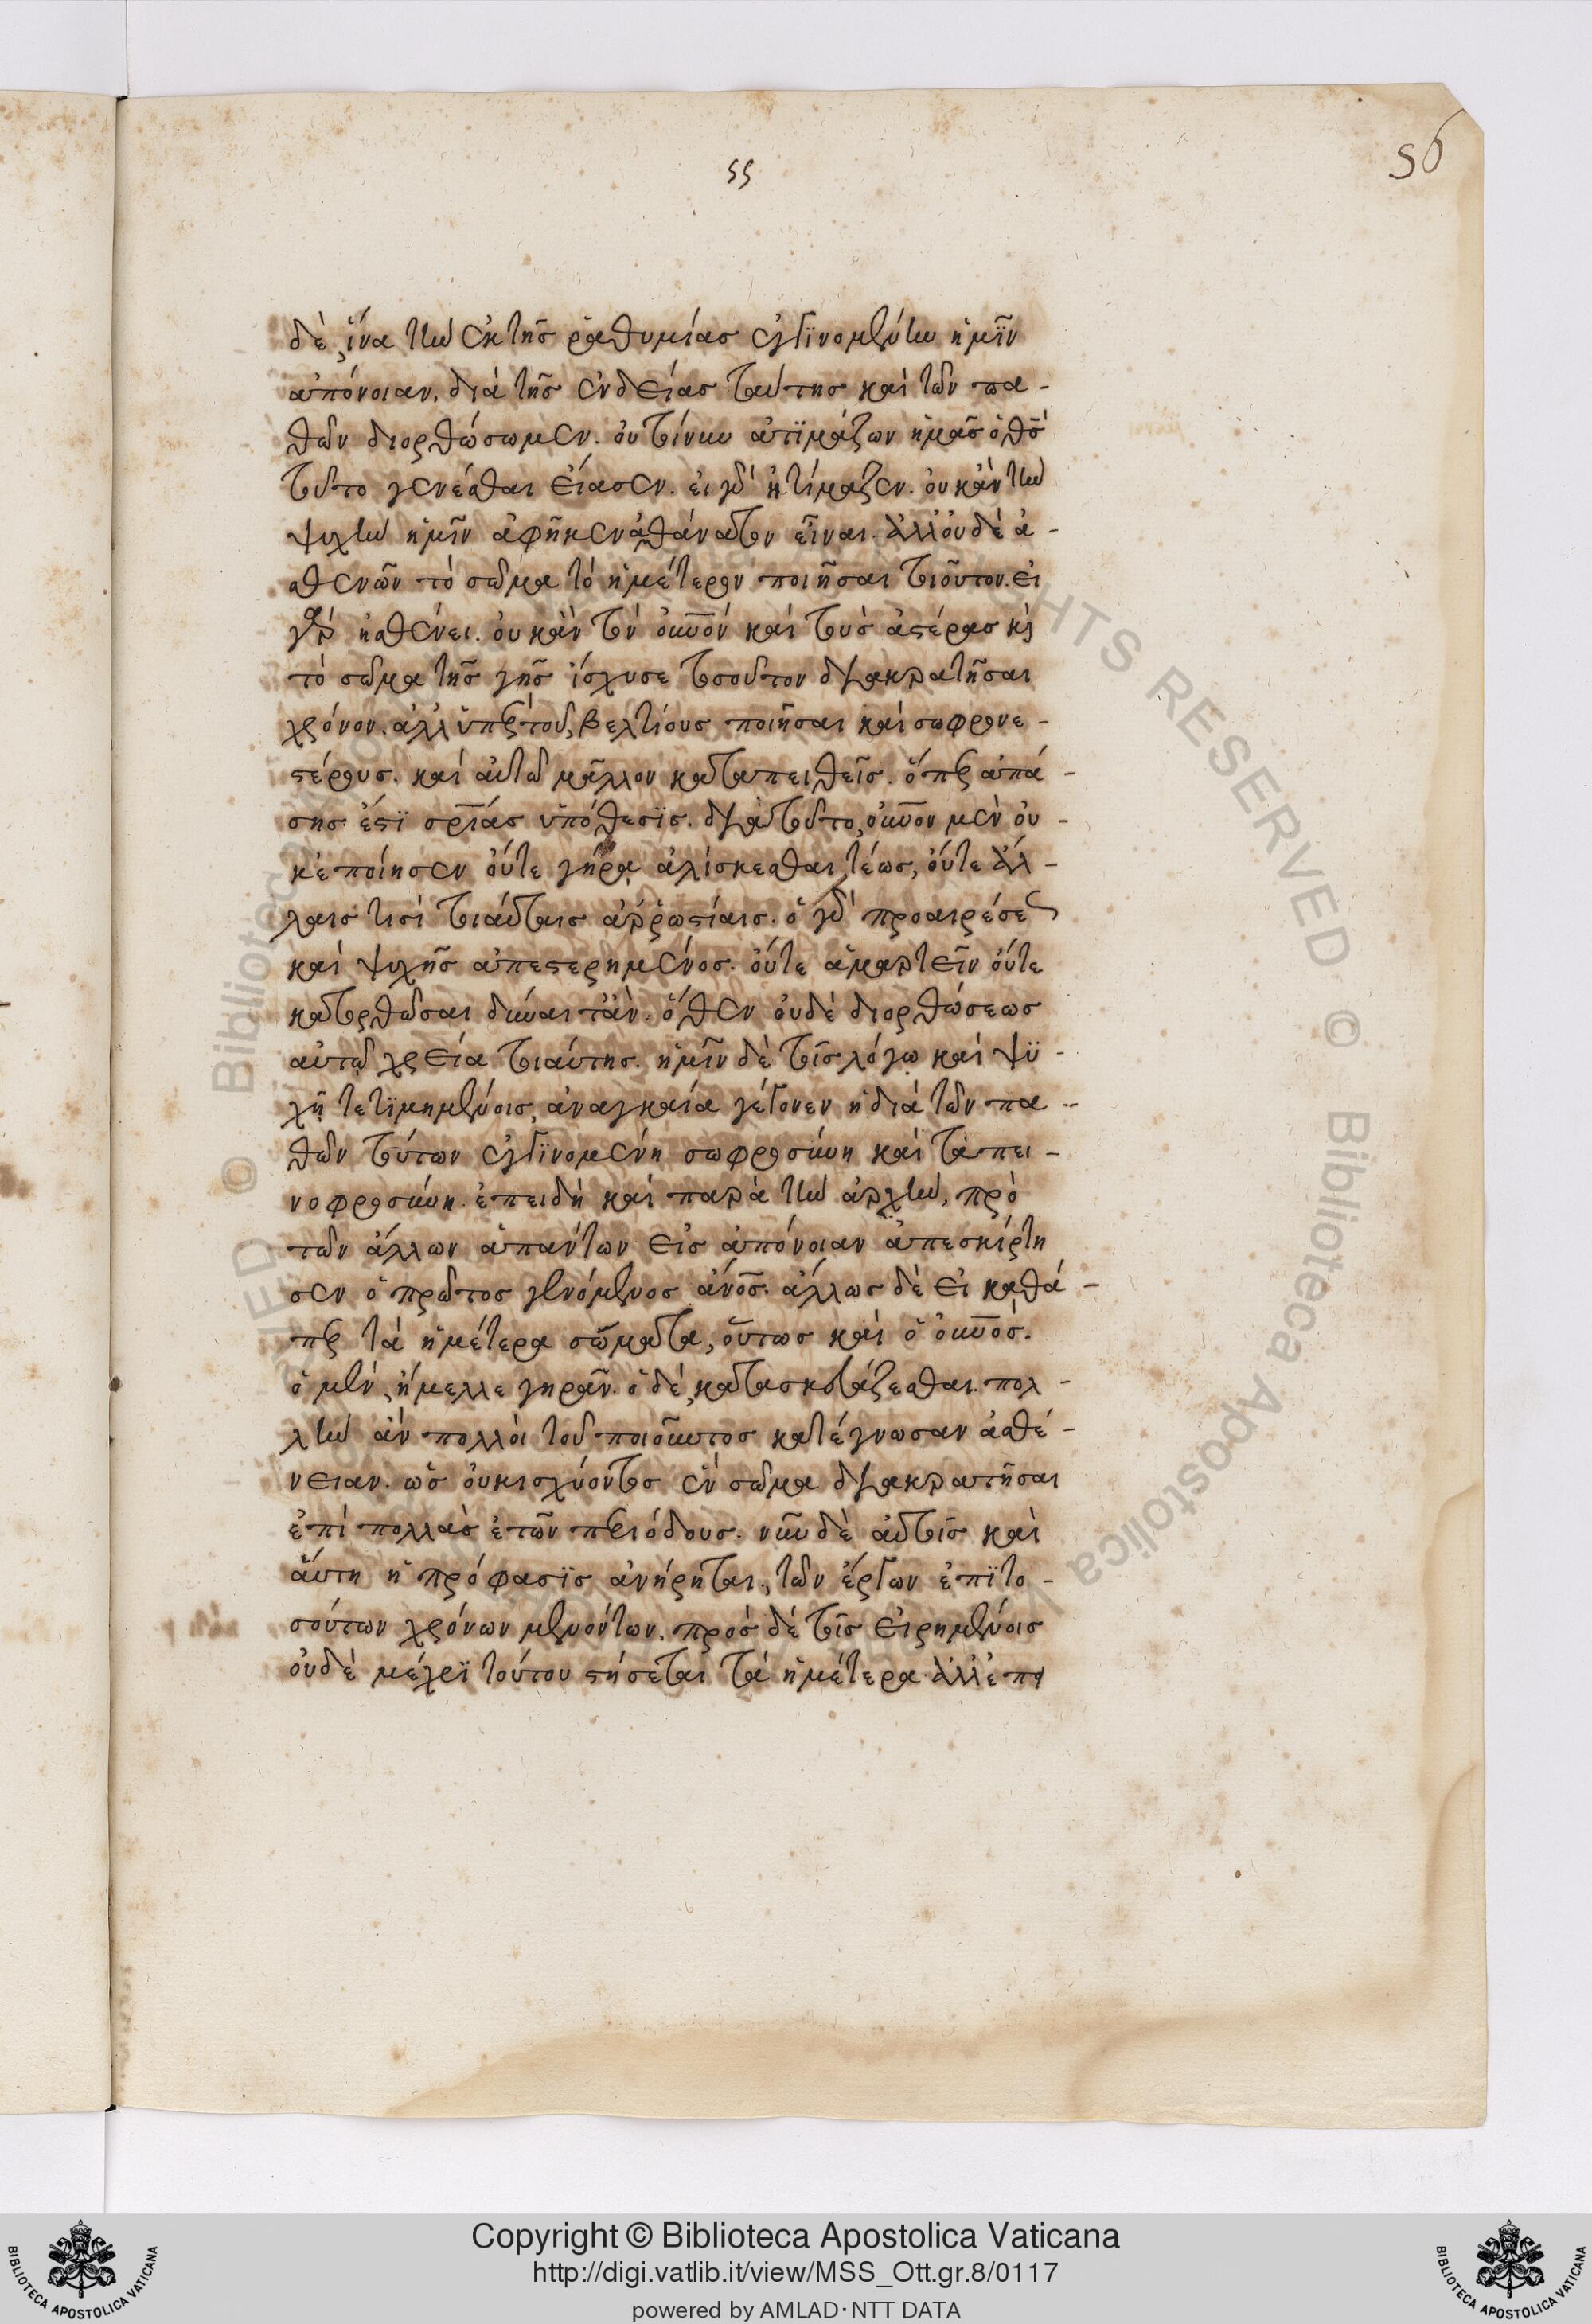 ςς
56
δὲ, ἵνα τὴν ἐκ τῆς ῥαθυμίας ἐγγϊνομένην ἡμῖν
ἀπόνοιαν, διὰ τῆς ἐνδείας ταύτης καὶ τῶν πα-
θῶν διορθώσωμεν. οὐ τοίνυν ἀτϊμάζων ἡμᾶς ὁ θς
τοῦτο γενέσθαι εἴασεν. εἰ γὰρ ἠτίμαζεν. οὐκ ἂν τὴν
ψυχὴν ἡμῖν ἀφῆκεν ἀθάνατον εἶναι. ἀλλ' οὐδὲ ἀ-
σθενῶν τὸ σῶμα τὸ ἡμέτερον ποιῆσαι τοιοῦτον. εἰ
γὰρ ἠσθένει. οὐκ ἂν τὸν οὐνὸν καὶ τοὺς ἀστέρας καὶ
τὸ σῶμα τῆς γῆς ἴσχυσε τοσοῦτον διακρατῆσαι
χρόνον. ἀλλ' ὑπὲρ τοῦ, βελτίους ποιῆσαι καὶ σωφρονε-
στέρους. καὶ αὐτῷ μᾶλλον καταπειθεῖς. ὅπερ ἁπά-
σης ἐστϊ σρίας ὑπόθεσϊς. διὰ τοῦτο, οὐνον μὲν οὐ-
κ ἐποίησεν οὔτε γήρᾳ ἁλίσκεσθαι, τέως, οὔτε ἄλ-
λαις τισὶ τοιαύταις ἀρρωστίαις. ὁ γὰρ προαιρέσεως
καὶ ψυχῆς ἀπεστερημένος. οὔτε ἁμαρτεῖν οὔτε
κατορθῶσαι δύναιτ' ἄν. ὅθεν οὐδὲ διορθώσεως
αὐτῷ χρεία τοιαύτης. ἡμῖν δὲ τοῖς λόγῳ καὶ ψυ-
χῇ τετϊμημένοις, ἀναγκαία γέγονεν ἡ διὰ τῶν πα-
θῶν τούτων ἐγγϊνομένη σωφροσύνη καὶ ταπει-
νοφροσύνη. ἐπειδὴ καὶ παρὰ τὴν ἀρχὴν, πρὸ
τῶν ἄλλων ἁπάντων εἰς ἀπόνοιαν ἀπεσκίρτη
σεν ὁ πρῶτος γενόμενος ἄνος. ἄλλως δὲ εἰ καθά-
περ τὰ ἡμέτερα σώματα, οὕτως καὶ ὁ οὐνός.
ὁ μὲν, ἤμελλε γηρᾶν. ὁ δὲ, κατασκευάζεσθαι. πολ-
λὴν ἂν πολλοὶ τοῦ ποιοῦντος κατέγνωσαν ἀσθέ-
νειαν. ὡς οὐκ ισχύοντος ἓν σῶμα διακρατῆσαι
ἐπὶ πολλὰς ἐτῶν περιόδους. νῦν δὲ αὐτοῖς καὶ
αὕτη ἡ πρόφασϊς ἀνήρηται, τῶν ἔργων ἐπϊ το-
σούτων χρόνων μενόντων. πρὸς δὲ τοῖς εἰρημένοις
οὐδὲ μέχρϊ τούτου στήσεται τὰ ἡμέτερα. ἀλλ' ἐπ
Copyright © Biblioteca Apostolica Vaticana
http://digi.vatlib.it/view/MSS_Ott.gr.8/0117
powered by AMLAD·NTT DATA